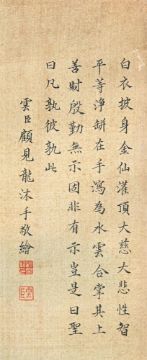 白衣披身金仙灌頂大慈大悲性智
平等淨缾在手瀉為水雲合掌其上
善財殷勤無示因非有示豈是曰聖
曰凡孰彼孰此
雲臣顧見龍沐手敬繪